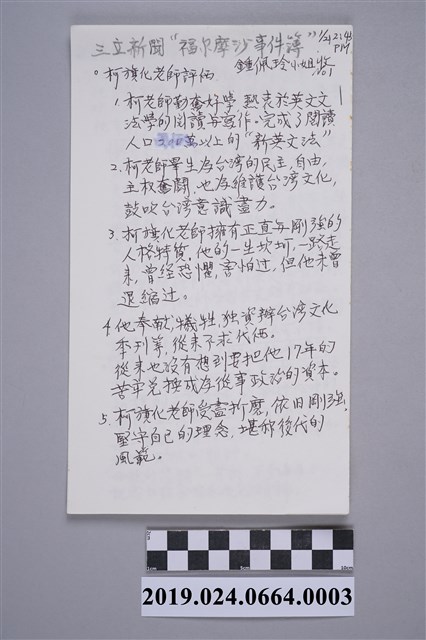 三立新聞"福尔摩沙事件簿" 1/21 2:43
PM
鍾佩玲小姐收
。柯旗化老師評価
1. 柯老師勤奮好學 熱衷於英文文
法學的閱讀与寫作,完成了閱讀
人口 萬以上的"新英文法"
2. 柯老師畢生為台湾的民主,自由,
主权奮鬪,也為維護台湾文化,
鼓吹台湾意識盡力。
3. 柯旗化老師擁有正直与剛強的
人格特質,他的一生坎坷,一路走
來,曾經恐懼,害怕过,但他未曾
退縮过。
4. 他奉献犧牲,独資辦台湾文化
季刊等,從来不求代価。
從来也沒有想到要把他17年的
苦牢兑換成為從事政治的資本。
5. 柯旗化老師受盡折磨,依旧剛強,
堅守自己的理念,堪称後代的
風範。
1cm 5cm 10cm
2019.024.0664.0003